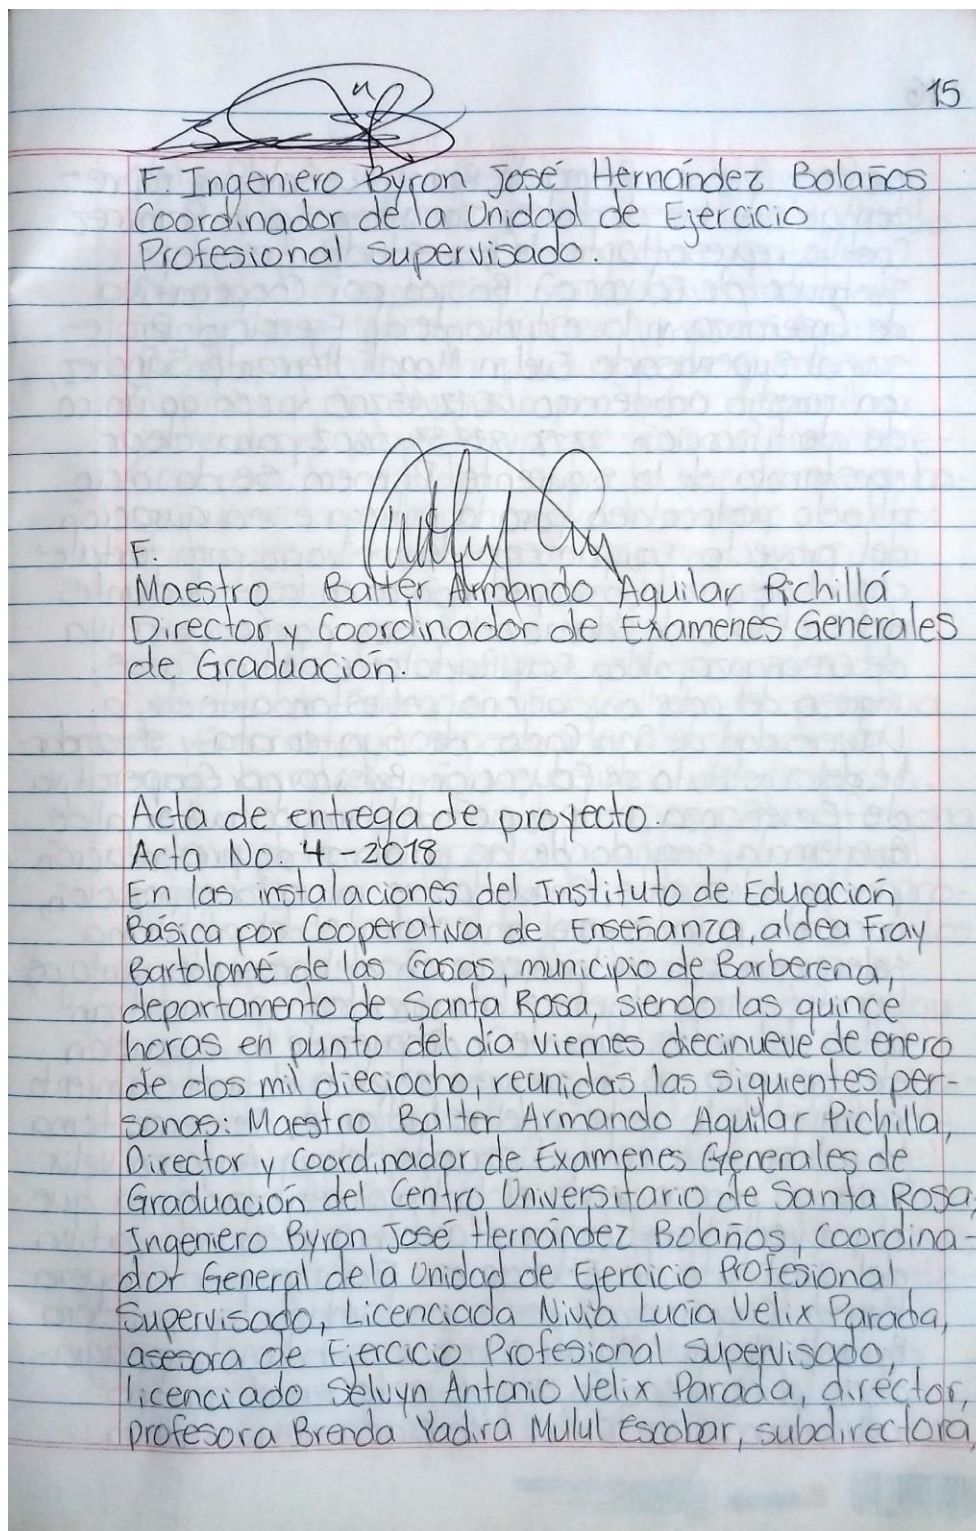 15
F. Ingeniero Byron José Hernández Bolaños
Coordinador de la Unidad de Ejercicio
Profesional Supervisado.
F.
Maestro Balter Armando Aguilar Pichillá
Director y Coordinador de Examenes Generales
de Graduación.
Acta de entrega de proyecto.
Acta No. 4-2018
En las instalaciones del Instituto de Educación
Básica por Cooperativa de Enseñanza, aldea Fray
Bartolomé de las Casas, municipio de Barberena,
departamento de Santa Rosa, siendo las quince
horas en punto del día viernes diecinueve de enero
de dos mil dieciocho, reunidas las siguientes per-
sonas: Maestro Balter Armando Aguilar Pichilla,
Director y Coordinador de Examenes Generales de
Graduación del Centro Universitario de Santa Rosa,
Ingeniero Byron José Hernández Bolaños, Coordina-
dor General de la Unidad de Ejercicio Profesional
Supervisado, Licenciada Nivia Lucia Velix Parada,
asesora de Ejercicio Profesional Supervisado,
licenciado Selvyn Antonio Velix Parada, director,
profesora Brenda Yadira Mulul Escobar, subdirectora,